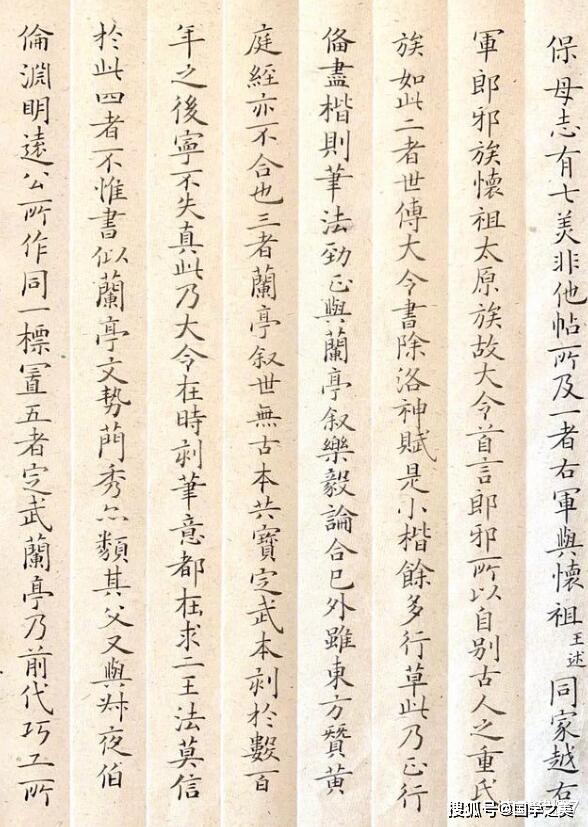 保母志有七美非他帖所及一者右軍與懷祖王述同家越右
軍郎邪族懷祖太原族故大令首言郎邪所以自別古人之重氏
族如此二者世傳大令書除洛神賦是小楷餘多行草此乃正行
俻盡楷則筆法勁正與蘭亭叙樂毅論合已外雖東方贊黃
庭經亦不合也三者蘭亭叙世無古本共寶定武本刻於數百
年之後寧不失真此乃大令在時刻筆意都在求二王法莫信
於此四者不惟書似蘭亭文勢蕳秀亦類其父又與叔夜伯
倫淵明遠公所作同一標置五者定武蘭亭乃前代巧工所
搜狐号@国学之美